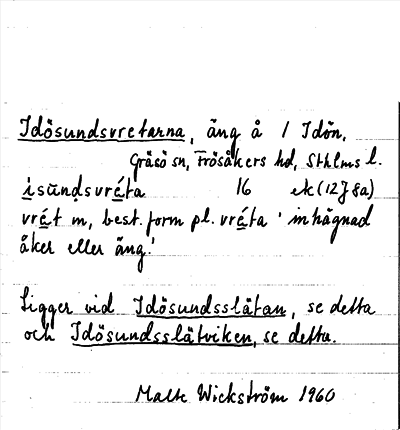 Idösundsvretarna, äng å / Idön,
Gräsö sn, Frösåkers hd, Sthlms l.
isùndsvréta 16 ek (12J8a)
vrét m, best. form pl. vréta 'inhägnad
åker eller äng.'
Ligger vid Idösundsslätan, se detta
och Idösundsslätviken, se detta.
Malte Wickström 1960